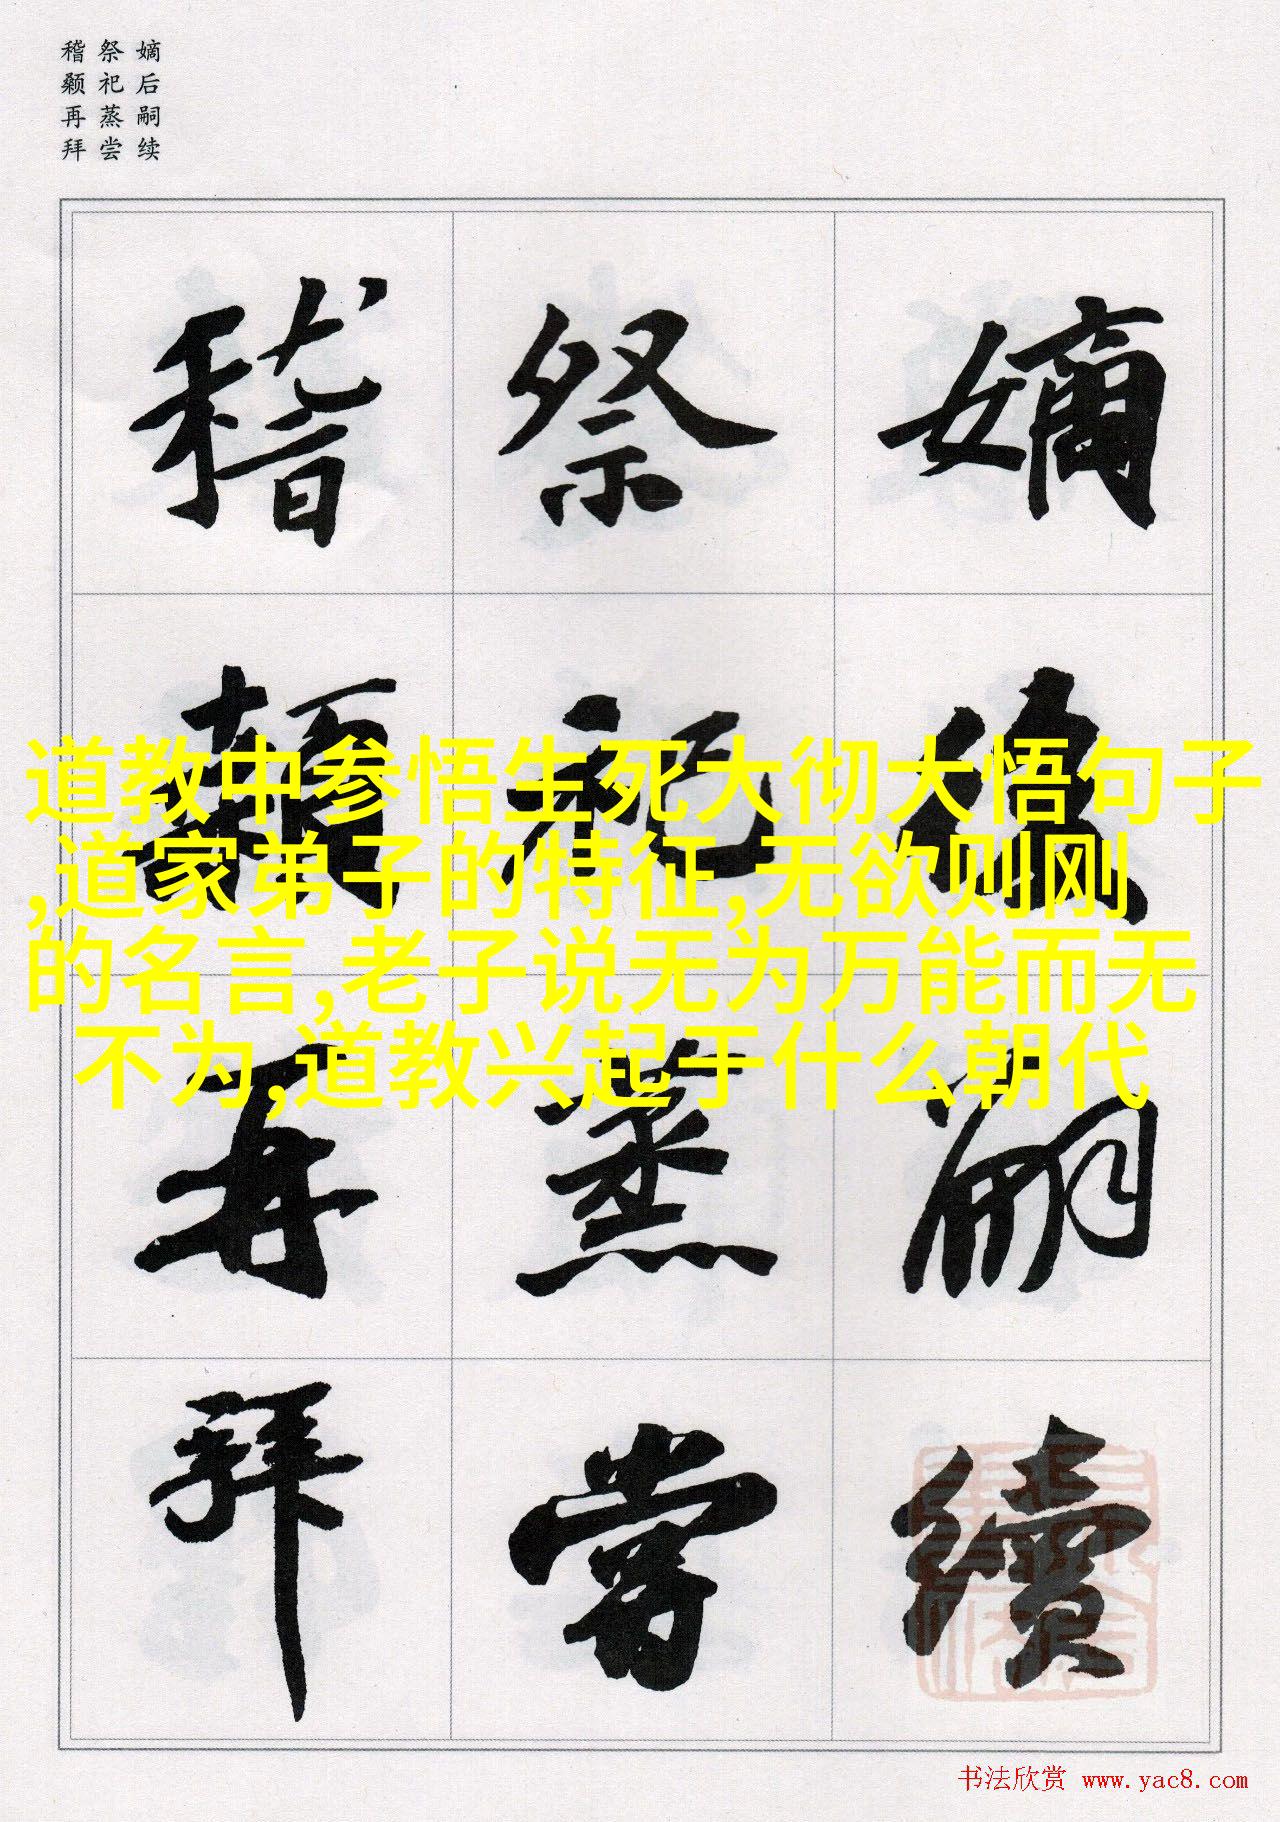 嫡后嗣续
祭祀蒸尝
稽颡再拜
嫡後嗣續
祭祀蒸嘗
稽顙再拜
道教中参悟生死大彻大悟句子
,道家弟子的特征,无欲则刚
的名言,老子说无为万能而无
不为,道教兴起于什么朝代
书法欣赏 www.yac8.com